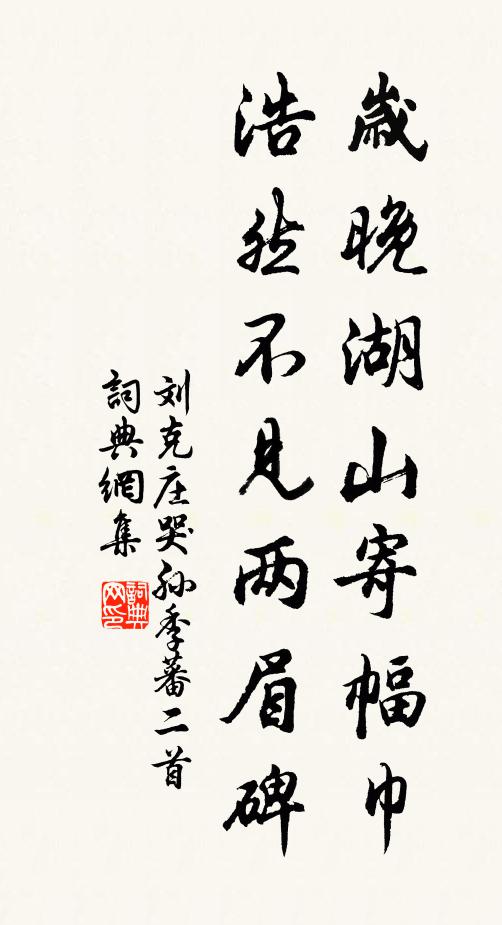 歲晚湖山寄幅巾
浩然不见两眉碑
刘克庄哭孙季蕃二首
詞典網集
詞典网印